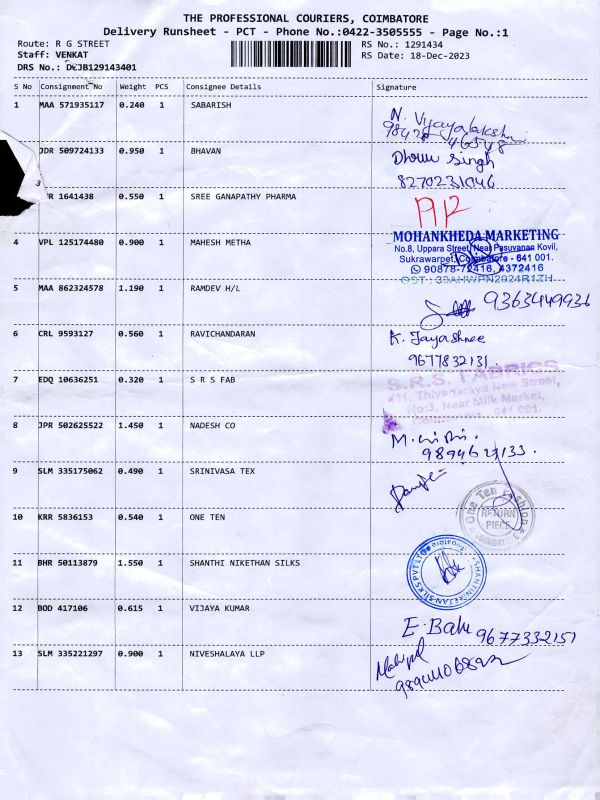 THE PROFESSIONAL COURIERS, COIMBATORE
Delivery Runsheet - PCT - Phone No.:0422-3505555 - Page No.:1
Route: R G STREET
Staff: VENKAT
DRS No.: DEJB129143401
RS No.: 1291434
RS Date: 18-Dec-2023
S No Consignment No Weight PCS Consignee Details Signature
1 MAA 571935117 0.240 1 SABARISH
N. Vijayalakshmi
JDR 509724133 0.950 1 BHAVAN
Singh
8270231046
3 1641438 0.550 1 SREE GANAPATHY PHARMA
4 VPL 125174480 0.900 1 MAHESH METHA
MOHANKHEDA MARKETING
No.8, Uppara Street, Near Pasuvanan Kovil,
Sukrawarpet, Coimbatore - 641 001.
90878-72416, 4372416
5 MAA 862324578 1.190 1 RAMDEV H/L
9363449936
6 CRL 9593127 0.560 1 RAVICHANDARAN
K. Jayashree
9677832131.
7 EDQ 10636251 0.320 1 S R S FAB
S.R.S. FABRICS
Thiyagaraya New Street,
No:3, Near Milk Market,
Coimbatore - 641 001.
8 JPR 502625522 1.450 1 NADESH CO
9 SLM 335175062 0.490 1 SRINIVASA TEX
10 KRR 5836153 0.540 1 ONE TEN
One Ten Fashion
RETURN
PIECE
COIMBATORE
11 BHR 50113879 1.550 1 SHANTHI NIKETHAN SILKS
SHANTINIKETAN SILKS PVT LTD
12 BOD 417106 0.615 1 VIJAYA KUMAR
E. Balu 9677332151
13 SLM 335221297 0.900 1 NIVESHALAYA LLP